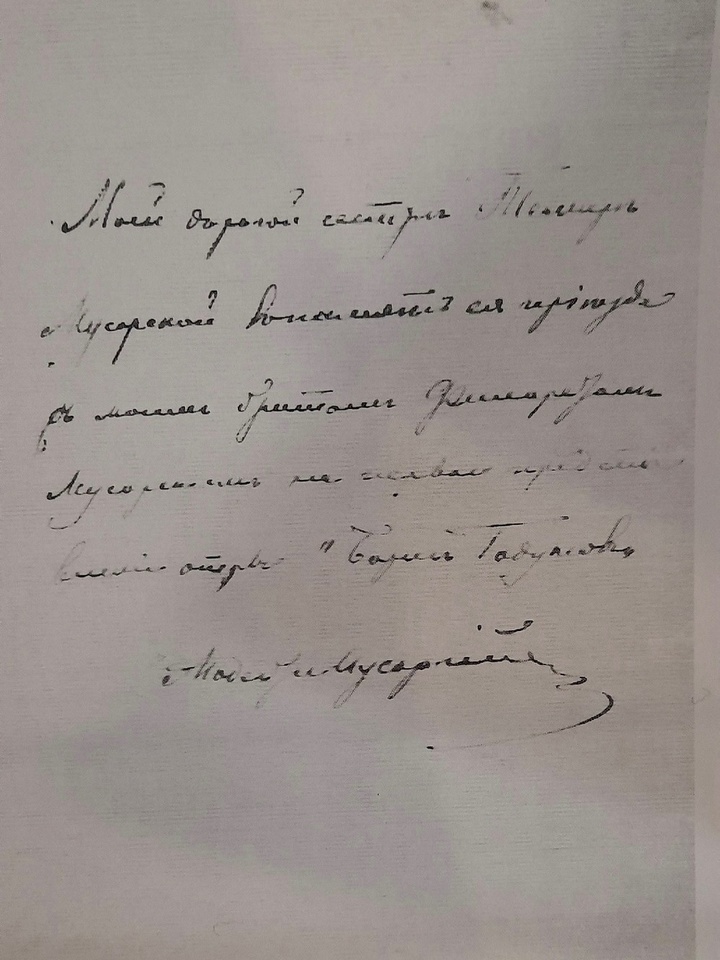 Моей дорогой сестрѣ
Мусорской въ память ея прiѣзда
съ моимъ братомъ Филаретомъ
Мусорскимъ на первое представ
ленiе оперы "Борисъ Годуновъ"
Модестъ Мусоргскiй